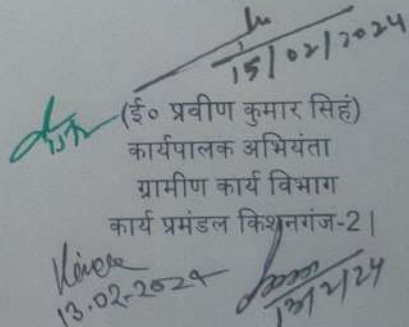 15/02/2024
(ई० प्रवीण कुमार सिहं)
कार्यपालक अभियंता
ग्रामीण कार्य विभाग
कार्य प्रमंडल किशनगंज-2|
13.02-2024
13/2/24